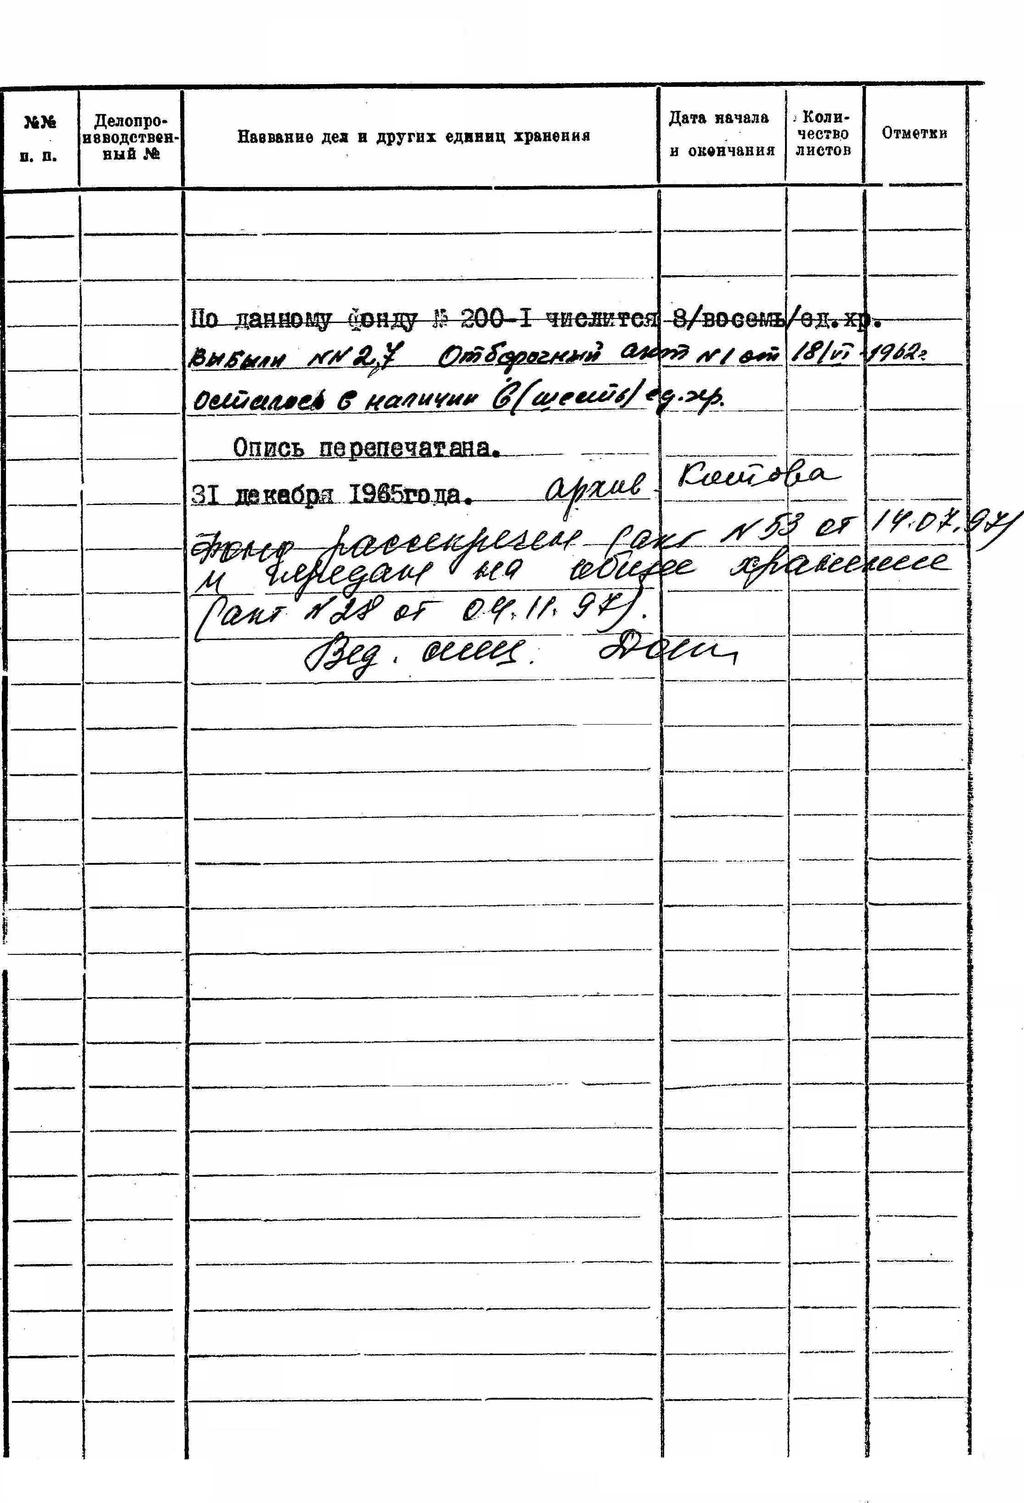 №№ п. п.
Делопро-
изводствен-
ный №
Название дел и других единиц хранения
Дата начала
и окончания
Коли-
чество
листов
Отметки
По данному фонду № 200-I числится 8/восемь/ед.хр.
Выбыли NN 2,7 Отборочный акт N 1 от 18/VI-1962г
осталось в наличии 6 (шесть) ед.хр.
Опись перепечатана.
31 декабря 1965года. архив
фонд рассекречен (акт N 53 от 14.07.97)
и передан на общее хранение
(акт N 28 от 04.11.97).
Вед. спец.